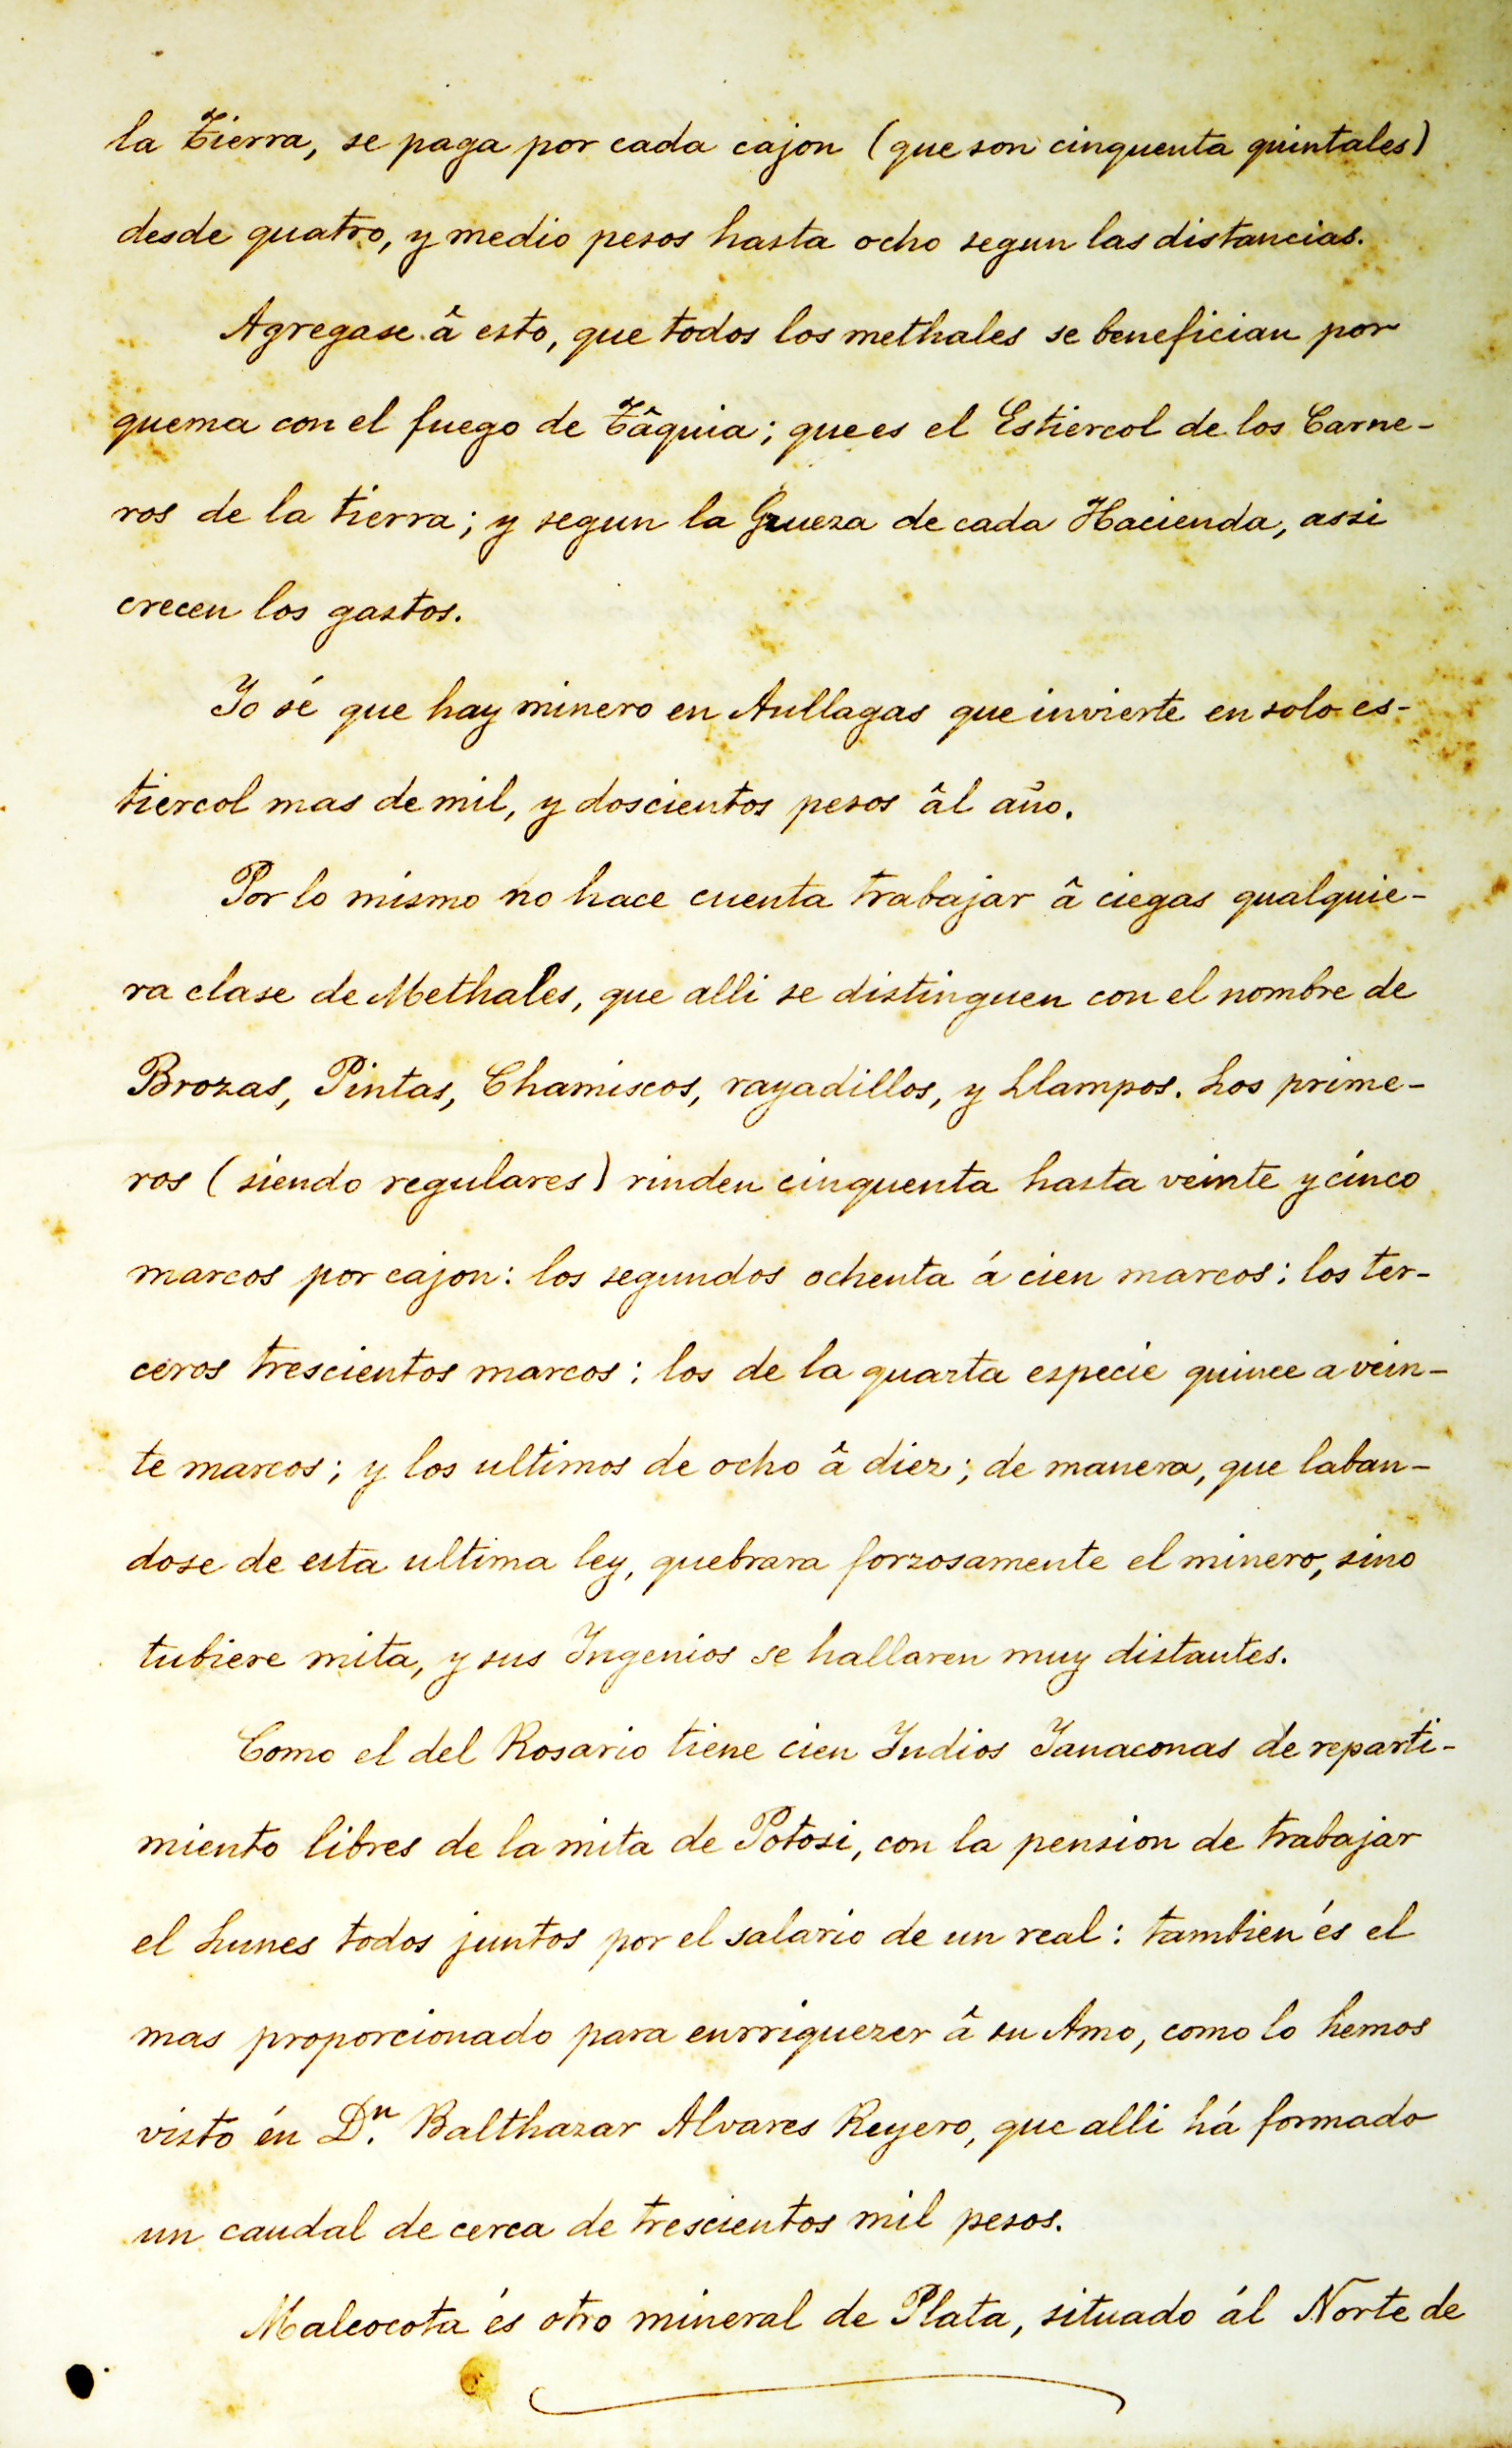 la Tierra, se paga por cada cajon (que son cinquenta quintales)
desde quatro, y medio pesos hasta ocho segun las distancias.
Agregase â esto, que todos los methales se benefician por
quema con el fuego de Tâquia; que es el Estiercol de los Carne-
ros de la tierra; y segun la Grueza de cada Hacienda, assi
crecen los gastos.
Yo sé que hay minero en Aullagas que invierte en solo es-
tiercol mas de mil, y doscientos pesos âl año.
Por lo mismo no hace cuenta trabajar â ciegas qualquie-
ra clase de Methales, que alli se distinguen con el nombre de
Brozas, Pintas, Chamiscos, rayadillos, y Llampos. Los prime-
ros (siendo regulares) rinden cinquenta hasta veinte y cinco
marcos por cajon: los segundos ochenta á cien marcos: los ter-
ceros trescientos marcos: los de la quarta especie quince a vein-
te marcos; y los ultimos de ocho â diez; de manera, que laban-
dose de esta ultima ley, quebrara forzosamente el minero, sino
tubiere mita, y sus Ingenios se hallaren muy distantes.
Como el del Rosario tiene cien Indios Yanaconas de reparti-
miento libres de la mita de Potosi, con la pension de trabajar
el Lunes todos juntos por el salario de un real: tambien és el
mas proporcionado para enrriquezer â su Amo, como lo hemos
visto én Dⁿ. Balthazar Alvares Reyero, que alli há formado
un caudal de cerca de trescientos mil pesos.
Malcocota és otro mineral de Plata, situado ál Norte de